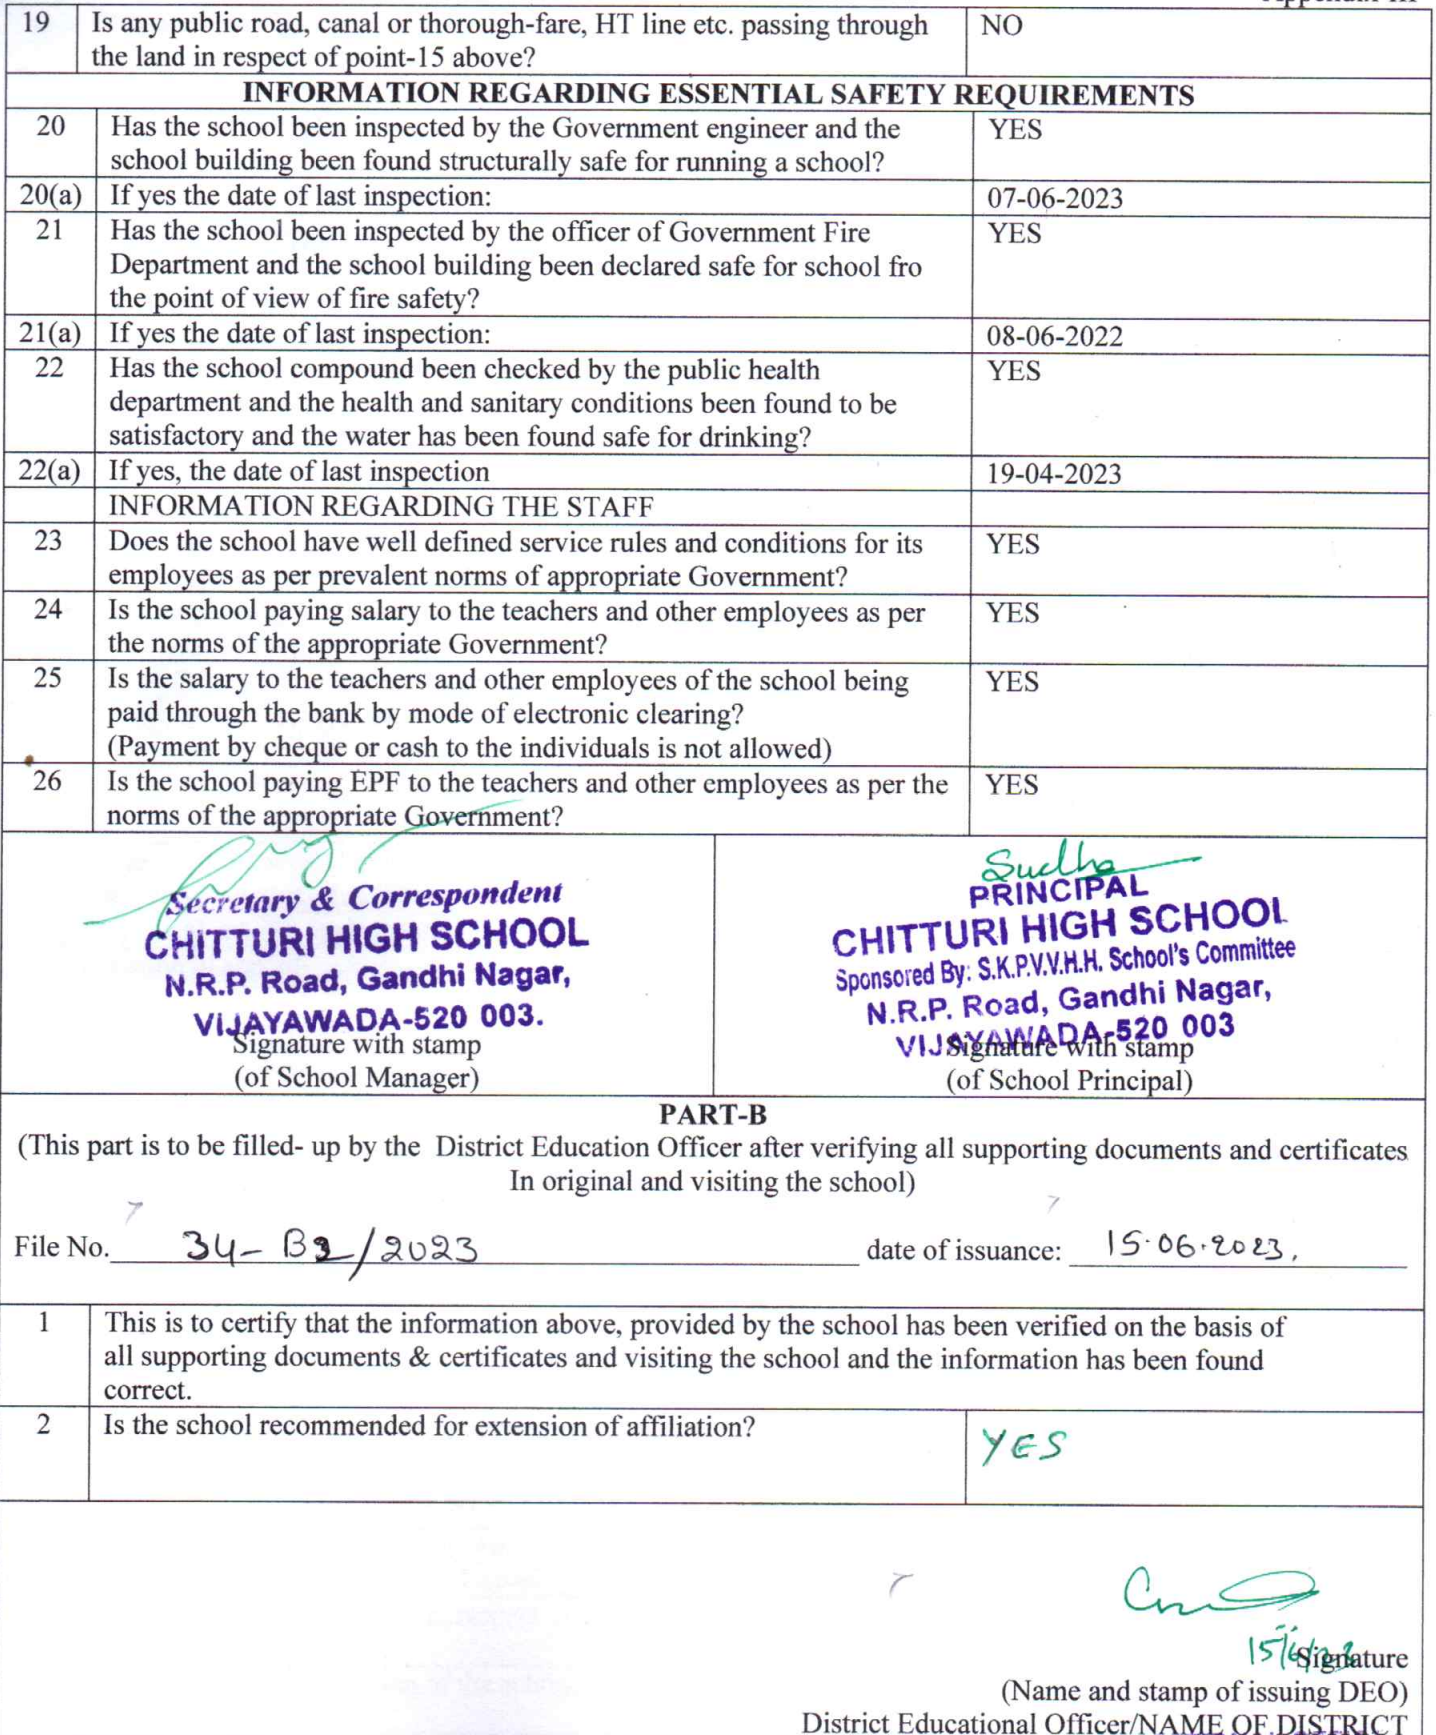 19 Is any public road, canal or thorough-fare, HT line etc. passing through NO
the land in respect of point-15 above?
INFORMATION REGARDING ESSENTIAL SAFETY REQUIREMENTS
20 Has the school been inspected by the Government engineer and the YES
school building been found structurally safe for running a school?
20(a) If yes the date of last inspection: 07-06-2023
21 Has the school been inspected by the officer of Government Fire YES
Department and the school building been declared safe for school fro
the point of view of fire safety?
21(a) If yes the date of last inspection: 08-06-2022
22 Has the school compound been checked by the public health YES
department and the health and sanitary conditions been found to be
satisfactory and the water has been found safe for drinking?
22(a) If yes, the date of last inspection 19-04-2023
INFORMATION REGARDING THE STAFF
23 Does the school have well defined service rules and conditions for its YES
employees as per prevalent norms of appropriate Government?
24 Is the school paying salary to the teachers and other employees as per YES
the norms of the appropriate Government?
25 Is the salary to the teachers and other employees of the school being YES
paid through the bank by mode of electronic clearing?
(Payment by cheque or cash to the individuals is not allowed)
26 Is the school paying EPF to the teachers and other employees as per the YES
norms of the appropriate Government?
Secretary & Correspondent
CHITTURI HIGH SCHOOL
N.R.P. Road, Gandhi Nagar,
VIJAYAWADA-520 003.
Signature with stamp
(of School Manager)
Sudha
PRINCIPAL
CHITTURI HIGH SCHOOL
Sponsored By: S.K.P.V.V.H.H. School's Committee
N.R.P. Road, Gandhi Nagar,
VIJAYAWADA-520 003
Signature with stamp
(of School Principal)
PART-B
(This part is to be filled- up by the District Education Officer after verifying all supporting documents and certificates
In original and visiting the school)
File No. 34- /2023 date of issuance: 15.06.2023.
1 This is to certify that the information above, provided by the school has been verified on the basis of
all supporting documents & certificates and visiting the school and the information has been found
correct.
2 Is the school recommended for extension of affiliation? YES
15/6/23
Signature
(Name and stamp of issuing DEO)
District Educational Officer/NAME OF DISTRICT